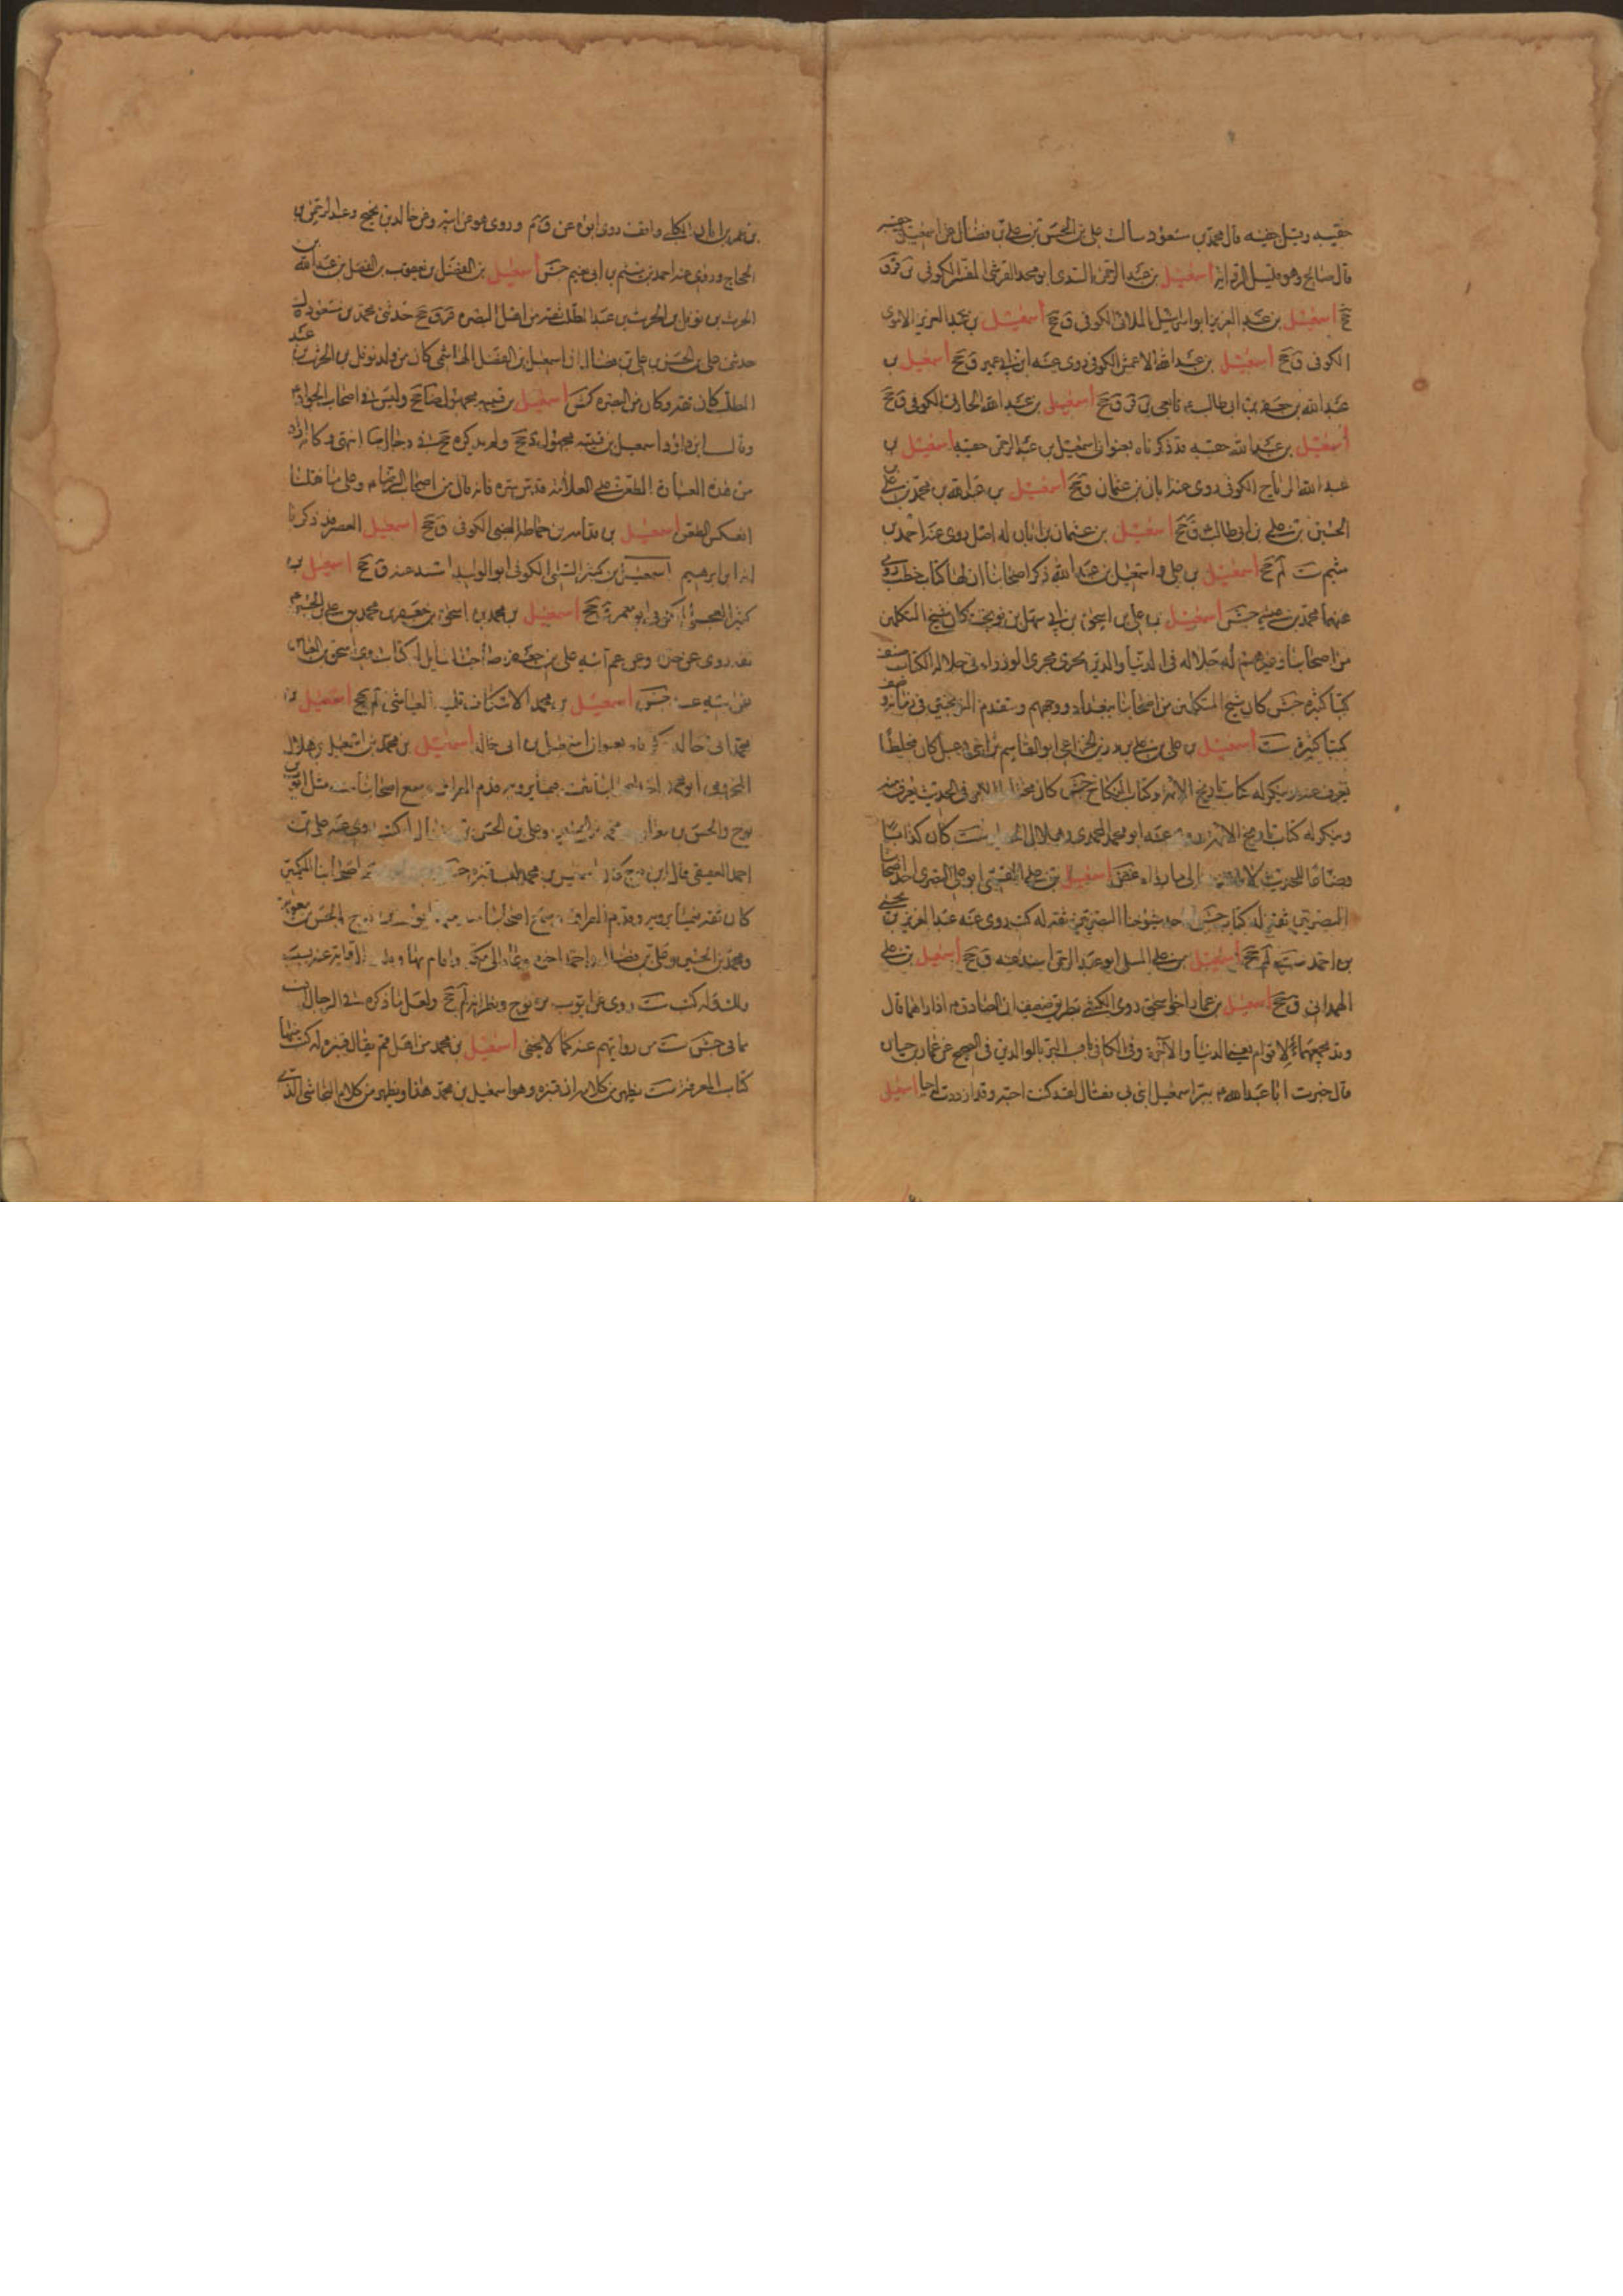 حقيبه وقيل حقيبه قال محمد بن مسعود سألت علي بن الحسن بن علي بن فضال عن اسمعيل حقيبه
قال صالح وهو قليل الرواية اسمعيل بن عبد الرحمن السدي ابو محمد القرشي المفسر الكوفي ين قر ق
جخ اسمعيل بن عبد العزيز ابو اسرائيل الملائي الكوفي ق جخ اسمعيل بن عبد العزيز الاموي
الكوفي ق جخ اسمعيل بن عبد الله الاعمش الكوفي روى عنه ابن ابي عمير ق جخ اسمعيل بن
عبد الله بن جعفر بن ابي طالب تابعي ين قر ق جخ اسمعيل بن عبد الله الحارثي الكوفي ق جخ
اسمعيل بن عبد الله حقيبه قد ذكرناه بعنوان اسمعيل بن عبد الرحمن حقيبه اسمعيل بن
عبد الله الرماح الكوفي روى عنه ابان بن عثمان ق جخ اسمعيل بن عبد الله بن محمد بن علي بن
الحسين بن علي بن ابي طالب ق جخ اسمعيل بن عثمان بن ابان له اصل روى عنه احمد بن
ميثم ست لم جخ اسمعيل بن علي واسمعيل بن عبد الله ذكر اصحابنا ان لهما كتاب خطب روى
عنهما محمد بن ميثم جش اسمعيل بن علي بن اسحق بن ابي سهل بن نوبخت كان شيخ المتكلمين
من اصحابنا وغيرهم له جلالة في الدنيا والدين يجري مجرى الوزراء في جلالة الكتاب صنف
كتبا كثيره جش كان شيخ المتكلمين من اصحابنا ببغداد ووجههم ومتقدم النوبختيين في زمانه صنف
كتبا كثيرة ست اسمعيل بن علي بن علي بن رزين الخزاعي ابو القاسم بن اخي دعبل كان مختلطا
يعرف منه وينكر له كتاب تاريخ الائمة وكتاب النكاح جش كان مختلط الامر في الحديث يعرف منه
وينكر له كتاب تاريخ الائمة روى عنه ابو محمد المحمدي وهلال الحفار ست كان كذابا
وضاعا للحديث لا الى ما رواه غض اسمعيل بن علي القمي ابو علي البصري احد اصحابنا
البصريين ثقة له كتاب جش احد شيوخنا البصريين ثقة له كتب روى عنه عبد العزيز بن يحيى
بن احمد ست لم جخ اسمعيل بن علي المسلي ابو عبد الرحمن اسند عنه ق جخ اسمعيل بن علي
الهمداني ق جخ اسمعيل بن عمار اخو اسحق روى الكشي بطريق ضعيف ان الصادق اذا راهما قال
وقد يجمعهما لاقوام يعني الدنيا والآخرة وفي الكافي باب البر بالوالدين في الصحيح عن عمار بن حيان
قال خبرت ابا عبد الله ببر اسمعيل ابني بي فقال لقد كنت احبه وقد ازددت له حبا اسمعيل
بن عمر بن ابان الكلبي واقف روى ابوه عن ق م وروى هو عن ابيه وعن خالد بن نجيح وعبد الرحمن بن
الحجاج وروى عنه احمد بن ميثم بن ابي نعيم جش اسمعيل بن الفضل بن يعقوب بن الفضل بن عبد الله بن
الحرث بن نوفل بن الحرث بن عبد المطلب ثقة من اهل البصره قر ق جخ حدثني محمد بن مسعود قال
حدثني علي بن الحسن بن علي بن فضال ان اسمعيل بن الفضل الهاشمي كان من ولد نوفل بن الحرث بن عبد
المطلب كان ثقه وكان من البصره كش اسمعيل بن قتيبه مجهول ضا جخ وليس في اصحاب الجواد
وقال ابن داود اسمعيل بن قتيبه مجهول د جخ ولم يذكره جخ في رجال ضا انتهى وكانه اراد
من هذه العبارة الطعن على العلامة قدس سره فانه قال من اصحاب الرضا وعلى ما قلنا
انعكس الطعن اسمعيل بن قدامه بن حماطه الضبي الكوفي ق جخ اسمعيل القصير قد ذكرنا
انه ابن ابرهيم اسمعيل بن كثير السلمي الكوفي ابو الوليد اسند عنه ق جخ اسمعيل بن
كثير العجلي الكوفي ابو معمر ق جخ اسمعيل بن محمد بن اسحق بن جعفر بن محمد بن علي بن الحسين
ثقه روى عن جده وعن عم ابيه علي بن جعفر صاحب المسائل له كتاب روى اسحق بن العباس
عن ابيه عنه جش اسمعيل بن محمد الاسكاف تلميذ العياشي لم جخ اسمعيل بن
محمد ابي خالد ذكرناه بعنوان اسمعيل بن ابي خالد اسمعيل بن محمد بن اسمعيل بن هلال
المخزومي ابو محمد احد اصحابنا ثقة فيما يرويه قدم العراق وسمع اصحابنا منه مثل ايوب بن
نوح والحسن بن معاوية ومحمد بن الحسين وعلي بن الحسن بن فضال له كتب روى عنه علي بن
احمد العقيقي قال ابن نوح كان اسمعيل بن محمد يلقب قنبره جش اصحابنا المكيين
كان ثقه فيما يرويه وقدم العراق وسمع اصحابنا منه ايوب بن نوح والحسن بن معوية
ومحمد بن الحسين وعلي بن فضال واحمد اخوه وعاد الى مكة واقام بها وقلت الرواية عنه بسبب
ذلك وله كتب ست روى عن ايوب بن نوح ونظرائه لم جخ ولعل ما ذكره في الرجال
ما في جش ست من روايتهم عنه كما لا يخفى اسمعيل بن محمد من اهل قم يقال قنبره له كتب منها
كتاب المعرفة ست يظهر من كلامه انه قنبره وهو اسمعيل بن محمد هذا ويظهر من كلام النجاشي الذي